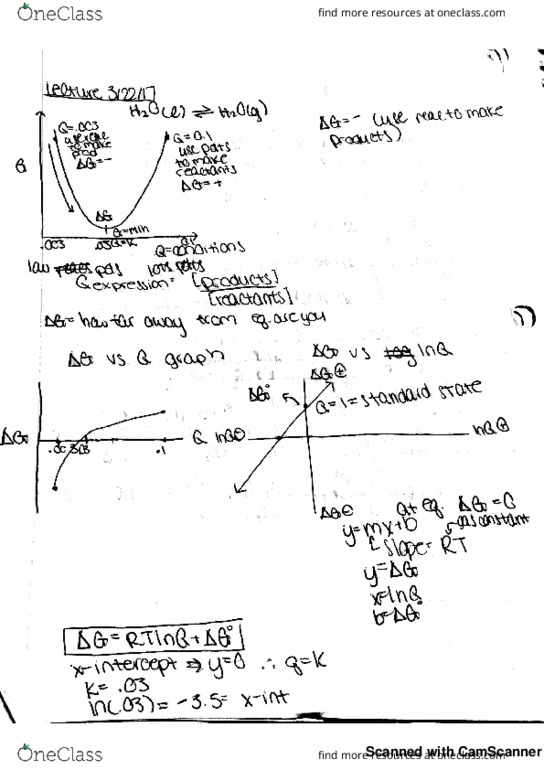 OneClass
find more resources at oneclass.com
Lecture 3/22/17
H₂O(l) ⇌ H₂O(g)
ΔG = - (use reac to make products)
Q=.003
to make
prod
ΔG=-
Q=0.1
use pdts
to make
reactants
ΔG=+
G
ΔG
G=min
Q=K
.003
.03
.1
Q=conditions
low pdts
lots pdts
Q expression = [products]
[reactants]
ΔG= how far away from eq. are you
ΔG vs Q graph
ΔG vs lnQ
ΔG⊕
ΔG°
Q=1=standard state
ΔG
.003
.03
.1
Q
lnQ⊖
lnQ⊕
ΔG⊖
at eq. ΔG=0
y=mx+b
gas constant
slope= RT
y=ΔG
x=lnQ
b=ΔG°
ΔG = RTlnQ + ΔG°
x-intercept ⇒ y=0 ∴ Q=K
K= .03
ln(.03) = -3.5= x-int
OneClass
find more resources at oneclass.com
Scanned with CamScanner